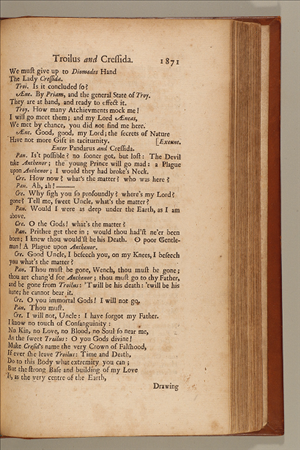 Troilus and Cressida. 1871
We must give up to Diomedes Hand
The Lady Cressida.
Troi. Is it concluded so?
Æne. By Priam, and the general State of Troy.
They are at hand, and ready to effect it.
Troy. How many Atchievments mock me!
I will go meet them; and my Lord Æneas,
We met by chance, you did not find me here.
Æne. Good, good, my Lord; the secrets of Nature
Have not more Gift in taciturnity. [Exeunt.
Enter Pandarus and Cressida.
Pan. Is't possible? no sooner got, but lost: The Devil
take Anthenor; the young Prince will go mad: a Plague
upon Anthenor; I would they had broke's Neck.
Cre. How now? what's the matter? who was here?
Pan. Ah, ah!
Cre. Why sigh you so profoundly? where's my Lord?
gone? Tell me, sweet Uncle, what's the matter?
Pan. Would I were as deep under the Earth, as I am
above.
Cre. O the Gods! what's the matter?
Pan. Prithee get thee in; would thou had'st ne'er been
born; I knew thou would'st be his Death. O poor Gentle-
man! A Plague upon Anthenor.
Cre. Good Uncle, I beseech you, on my Knees, I beseech
you what's the matter?
Pan. Thou must be gone, Wench, thou must be gone;
thou art chang'd for Anthenor; thou must go to thy Father,
and be gone from Troilus: 'Twill be his death: 'twill be his
bane; he cannot bear it.
Cre. O you immortal Gods! I will not go.
Pan. Thou must.
Cre. I will not, Uncle: I have forgot my Father.
I know no touch of Consanguinity:
No Kin, no Love, no Blood, no Soul so near me,
As the sweet Troilus: O you Gods divine!
Make Cressid's name the very Crown of Falshood,
If ever she leave Troilus: Time and Death,
Do to this Body what extremity you can;
But the strong Base and building of my Love
Is, as the very centre of the Earth,
Drawing